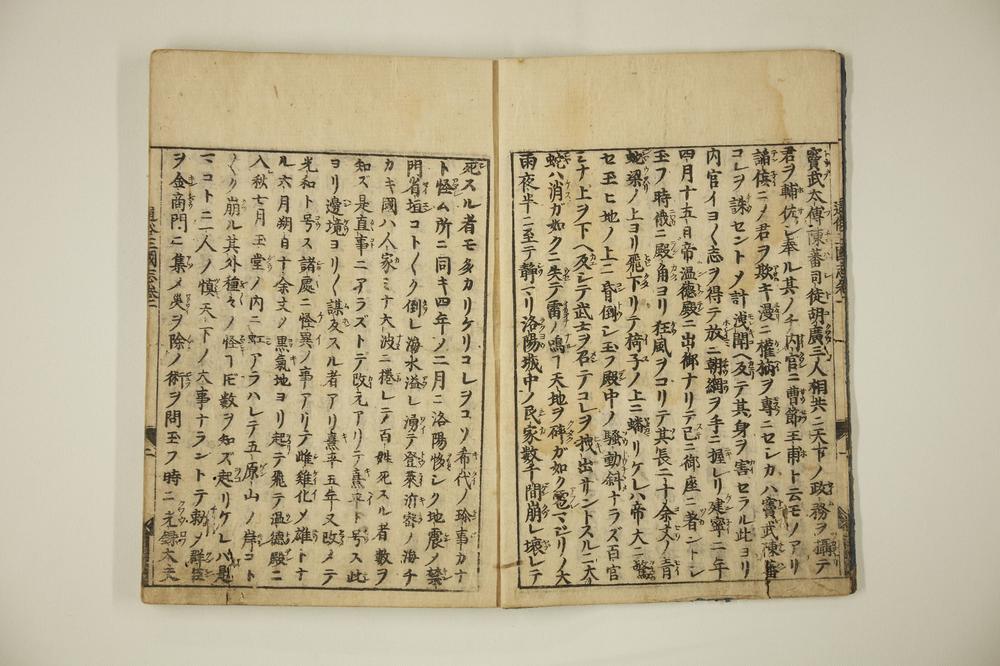 竇武太傅陳蕃司徒胡廣三人相共ニ天下ノ政務ヲ攝テ
君ヲ輔佐シ奉ル其ノチ内官ニ曹節王甫ト云モノアリ
諸侯ニノ君ヲ欺キ漫ニ權柄ヲ專ニセシカハ竇武陳蕃
コレヲ誅セントメ計洩聞ヘ及テ其身ヲ害セラル此ヨリ
内官イヨ〱志ヲ得テ放ニ朝綱ヲ手ニ握レリ建寧二年
四月十五日帝温德殿ニ出御ナリテ已ニ御座ニ著ントシ
玉フ時俄ニ殿角ヨリ狂風ヲコリテ其長二十余丈ノ青
蛇梁ノ上ヨリ飛下リテ椅子ノ上ニ蟠リケレハ帝大ニ驚
セ玉ヒ地ノ上ニ昏倒シ玉フ殿中ノ騒動斜ナラズ百官
ミナ上ヲ下ヘ反シテ武士ヲ召テコレヲ拽出サントスルニ大
蛇ハ消カ如クニ失テ雷ノ鳴丁天地ヲ碎ガ如ク雹マジリノ大
雨夜半ニ至テ靜マリ洛陽城中ノ民家數千間崩レ壊レテ
死スル者モ多カリケリコレヲコソ希代ノ珍事カナ
ト怪ム所ニ同キ四年ノ二月ニ洛陽夥シク地震ノ禁
門省垣コト〱ク倒レ海水溢レ湧テ登萊沂密ノ海チ
カキ國ハ人家ミナ大波ニ捲レテ百姓死スル者數ヲ
知ズ是直事ニアラズトテ改元アリテ熹平ト号ス此
ヨリ邊境ヨリ〱謀反スル者アリ熹平五年又改メテ
光和ト号ス諸處ニ怪異ノ事アリテ雌雞化メ雄トナ
ル六月朔日十余丈ノ黒氣地ヨリ起テ飛テ温德殿ニ
入秋七月玉堂ノ内ニ虹アラハレテ五原山ノ岸コト
〱ク崩ル其外種々ノ怪丁ドモ數ヲ知ズ起リケレハ是
マコト二人ノ慎天下ノ大事ナラントテ勅メ群臣
ヲ金商門ニ集メ災ヲ除ノ術ヲ問玉フ時ニ光録大夫
通俗三國志卷一